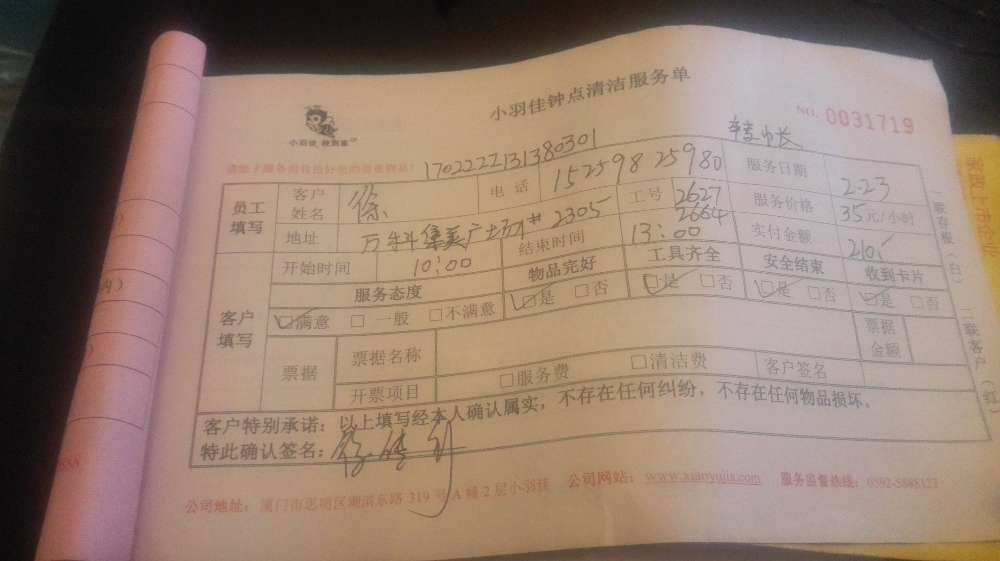 小羽佳钟点清洁服务单
NO. 0031719
小羽佳
170222213138030​1
员工填写 客户姓名 徐 电话 15259825980 服务日期 2.23
地址 万科集美广场 2305 工号 2627 2664 服务价格 35元/小时
开始时间 10:00 结束时间 13:00 实付金额 210
客户填写 服务态度 物品完好 工具齐全 安全结束 收到卡片
☑满意 □一般 □不满意 ☑是 □否 ☑是 □否 ☑是 □否 ☑是 □否
票据 票据名称 票据金额
开票项目 □服务费 □清洁费 客户签名
客户特别承诺：以上填写经本人确认属实，不存在任何纠纷，不存在任何物品损坏。
特此确认签名：
公司地址：厦门市思明区湖滨东路319号A幢2层小羽佳 公司网站：www.xiaoyujia.com 服务监督热线：